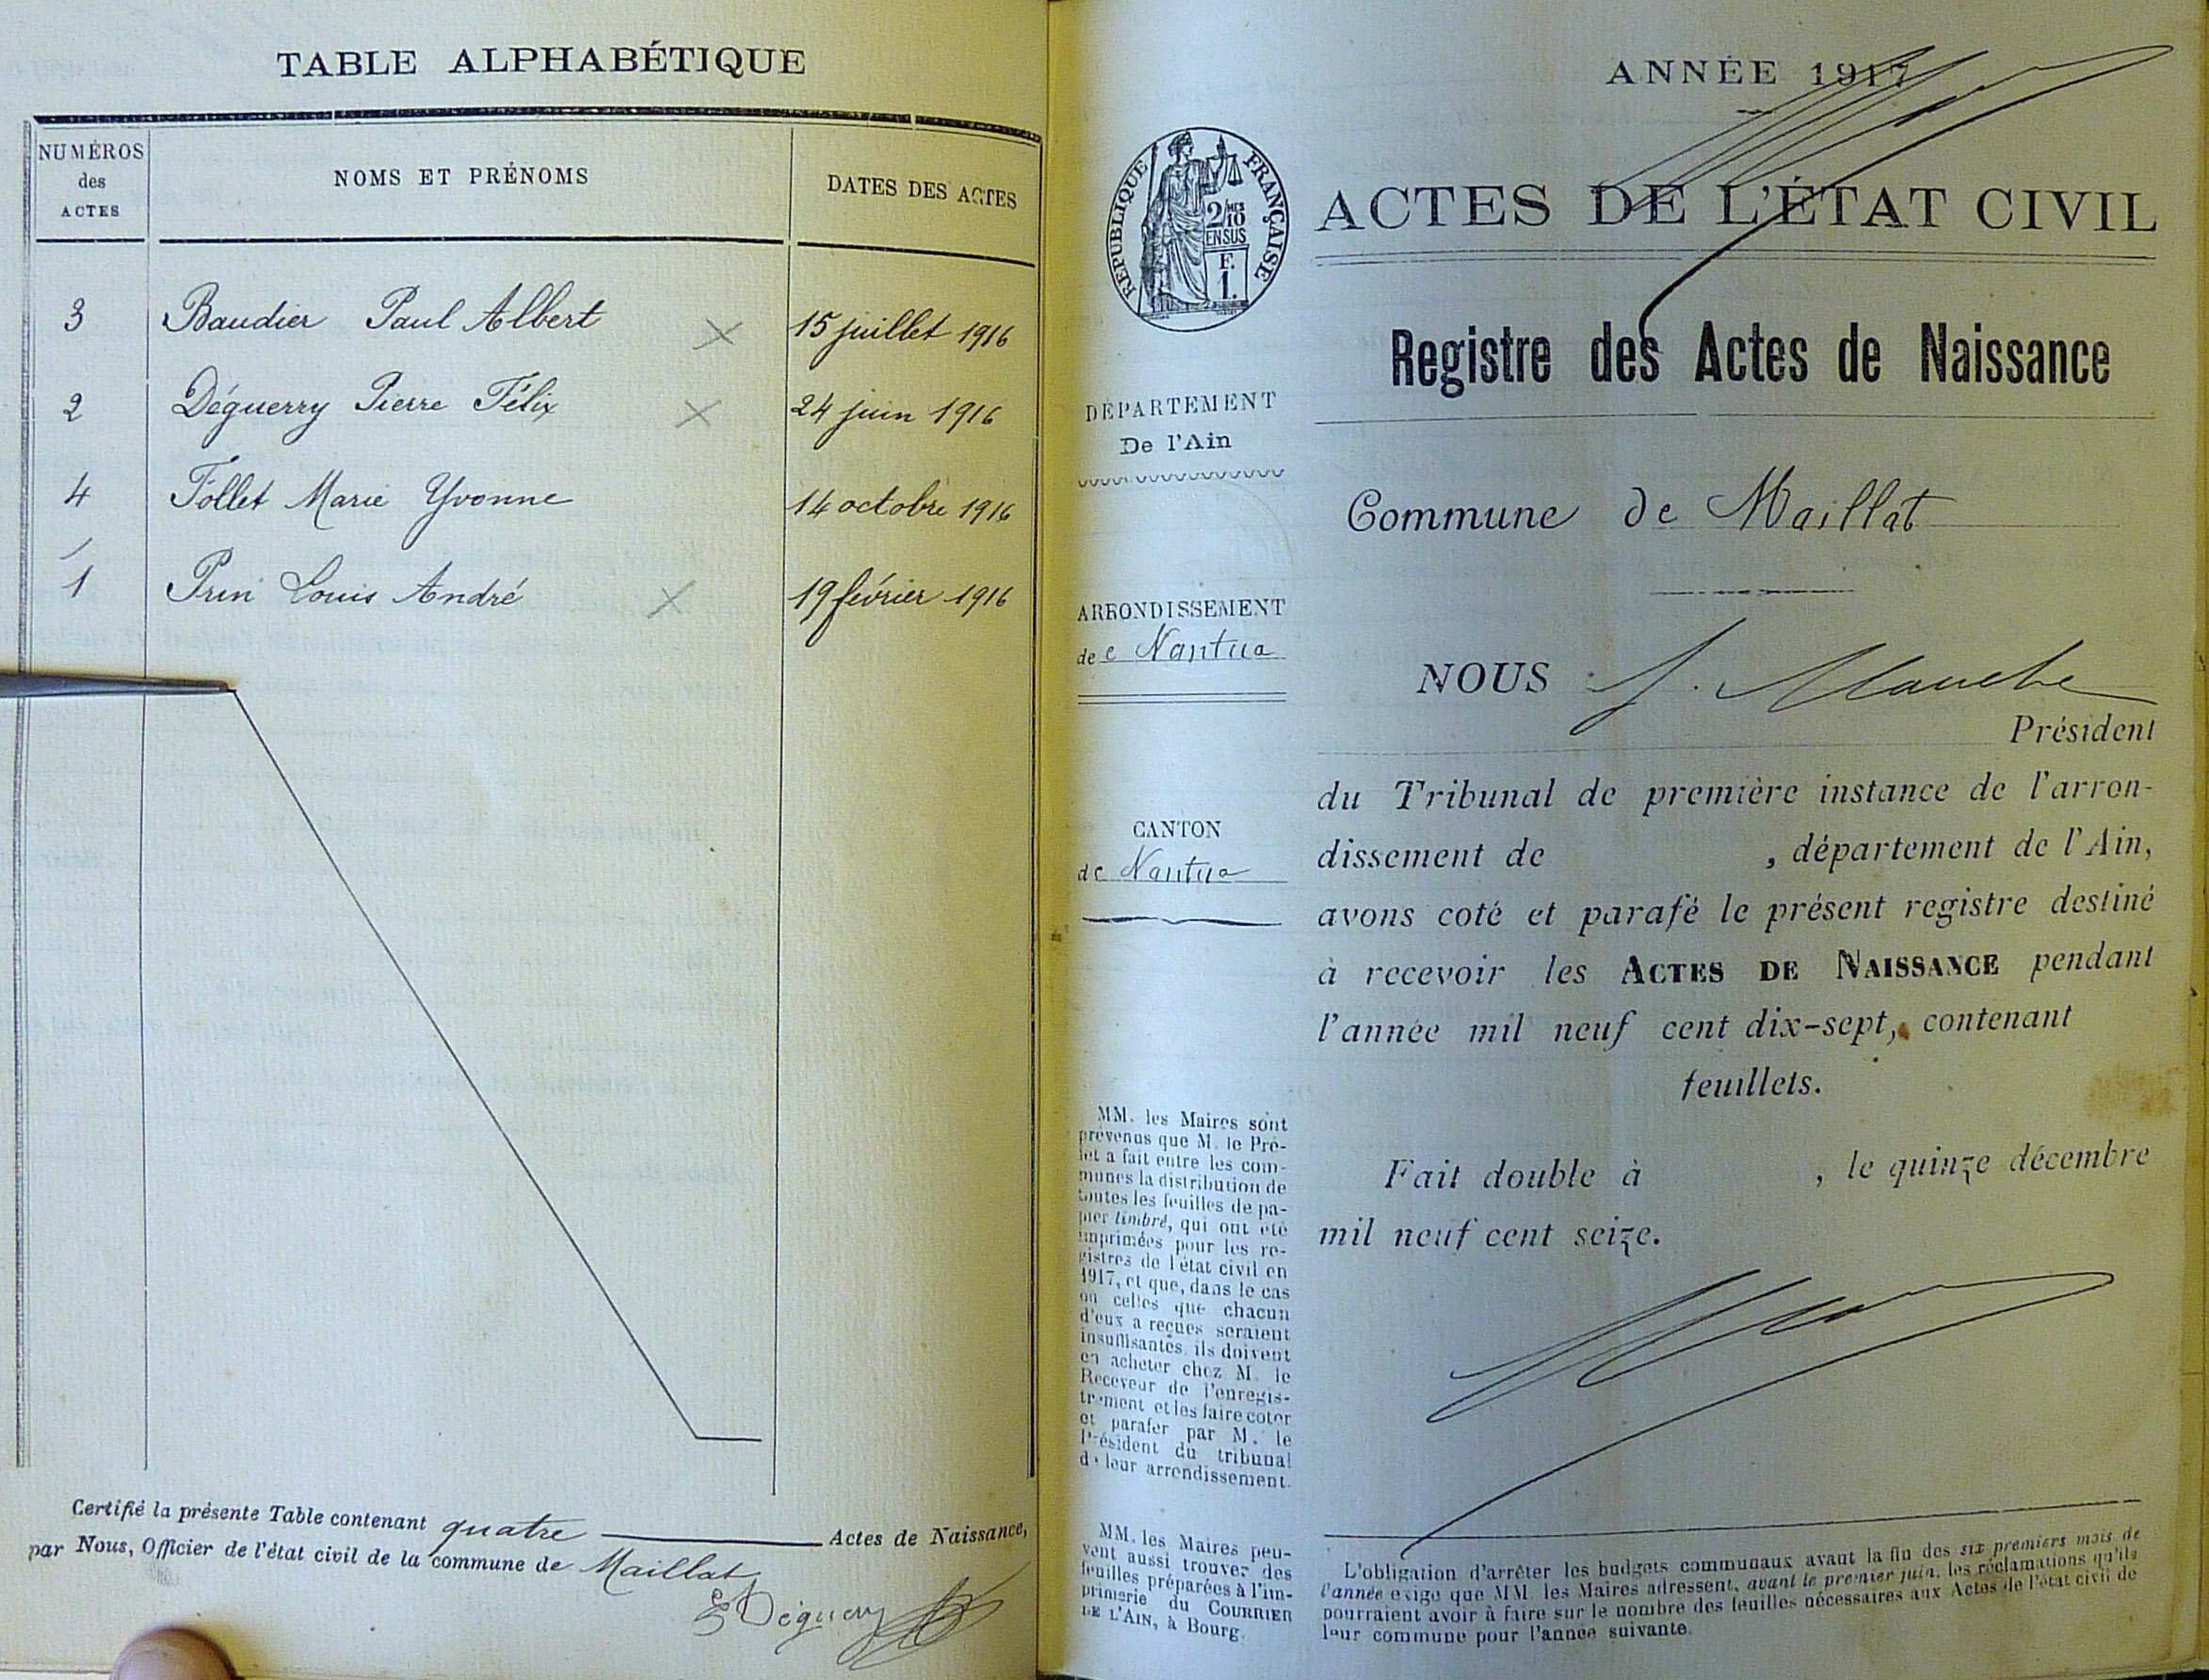 TABLE ALPHABÉTIQUE
NUMÉROS
des
ACTES
NOMS ET PRÉNOMS
DATES DES ACTES
3 Baudier Paul Albert 15 juillet 1916
2 Déguerry Pierre Félix 24 juin 1916
4 Follet Marie Yvonne 14 octobre 1916
1 Prin Louis André 19 février 1916
Certifié la présente Table contenant quatre Actes de Naissance,
par Nous, Officier de l'état civil de la commune de Maillat
Déguerry
ANNÉE 1917
RÉPUBLIQUE FRANÇAISE
2/10
MES
EN SUS
F.
1.
ACTES DE L'ÉTAT CIVIL
Registre des Actes de Naissance
DÉPARTEMENT
De l'Ain
Commune de Maillat
ARRONDISSEMENT
de Nantua
CANTON
de Nantua
NOUS
Président
du Tribunal de première instance de l'arron-
dissement de , département de l'Ain,
avons coté et parafé le présent registre destiné
à recevoir les ACTES DE NAISSANCE pendant
l'année mil neuf cent dix-sept, contenant
feuillets.
Fait double à , le quinze décembre
mil neuf cent seize.
MM. les Maires sont
prévenus que M. le Pré-
fet a fait entre les com-
munes la distribution de
toutes les feuilles de pa-
pier timbré, qui ont été
imprimées pour les re-
gistres de l'état civil en
1917, et que, dans le cas
où celles que chacun
d'eux a reçues seraient
insuffisantes, ils doivent
en acheter chez M. le
Receveur de l'enregis-
trement et les faire coter
et parafer par M. le
Président du tribunal
de leur arrondissement.
MM. les Maires peu-
vent aussi trouver des
feuilles préparées à l'im-
primerie du COURRIER
DE L'AIN, à Bourg.
L'obligation d'arrêter les budgets communaux avant la fin des six premiers mois de
l'année exige que MM. les Maires adressent, avant le premier juin, les réclamations qu'ils
pourraient avoir à faire sur le nombre des feuilles nécessaires aux Actes de l'état civil de
leur commune pour l'année suivante.